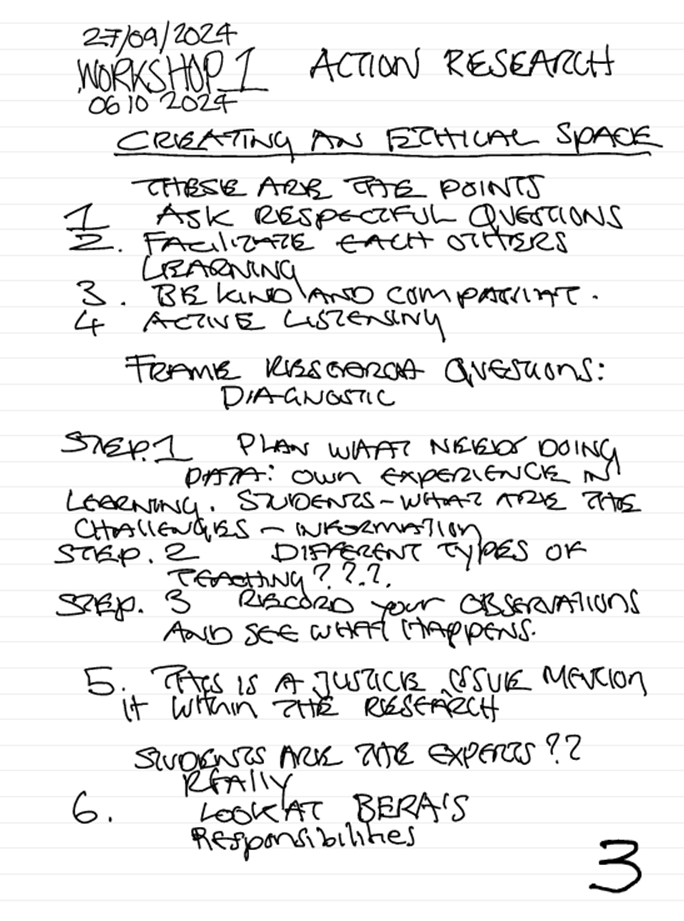 27/09/2024
WORKSHOP 1 ACTION RESEARCH
06 10 2024
CREATING AN ETHICAL SPACE
THESE ARE THE POINTS
1 ASK RESPECTFUL QUESTIONS
2. FACILITATE EACH OTHERS
LEARNING
3. BE KIND AND
4 ACTIVE LISTENING
FRAME RESEARCH QUESTIONS:
DIAGNOSTIC
STEP.1 PLAN WHAT NEEDS DOING
DATA: OWN EXPERIENCE IN
LEARNING. STUDENTS - WHAT ARE THE
CHALLENGES - INFORMATION
STEP. 2 DIFFERENT TYPES OF
TEACHING???.
STEP. 3 RECORD your OBSERVATIONS
AND SEE WHAT HAPPENS.
5. THIS IS A JUSTICE ISSUE MENTION
it WITHIN THE RESEARCH
STUDENTS ARE THE EXPERTS??
REALLY
6. LOOK AT BERA'S
Responsibilities
3